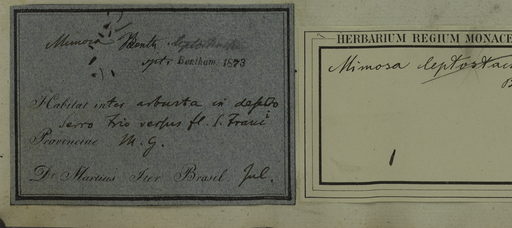 Mimosa Benth. leptostachya
Bentham. 1873
Habitat inter arbusta in deserto
Serro Frio versus fl. S. Franc
Provinciae M. G.
Dr. Martius Iter Brasil. Jul.
HERBARIUM REGIUM MONACE
Mimosa leptostac